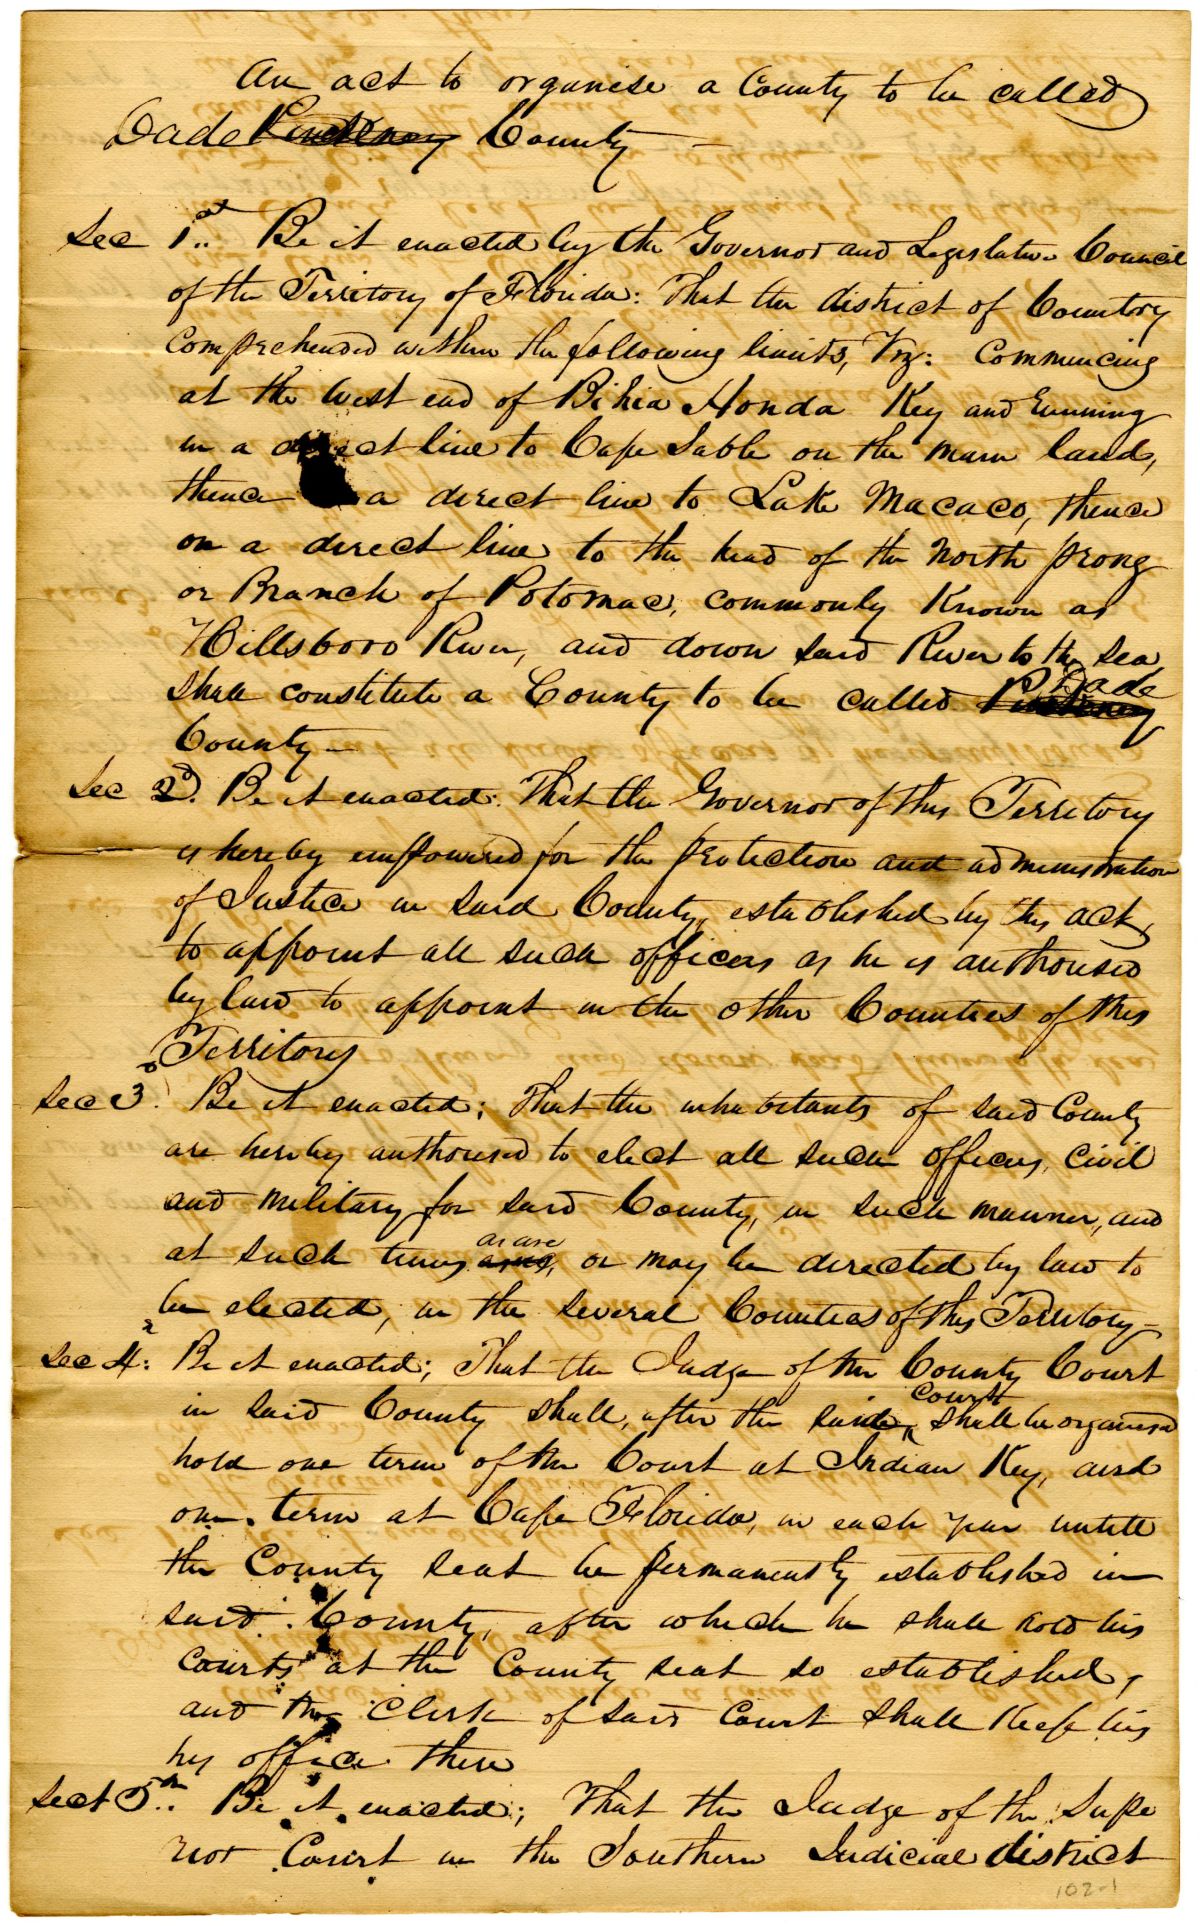 An act to organise a County to be called
Dade Pinckney County —
Sec 1st. Be it enacted by the Governor and Legislative Council
of the Territory of Florida: That the district of Country
comprehended within the following limits, Viz: Commencing
at the West end of Bihia Honda Key and running
in a direct line to Cape Sable on the main land,
thence a direct line to Lake Macaco, thence
on a direct line to the head of the North prong
or Branch of Potomac, commonly Known as
Hillsboro River, and down said River to the sea,
shall constitute a County to be called Pinckney Dade
County —
Sec 2d. Be it enacted: That the Governor of this Territory
is hereby empowered for the protection and administration
of Justice in said County, established by this act,
to appoint all such officers as he is authorised
by law to appoint in the other Counties of this
Territory
Sec 3d. Be it enacted; That the inhabitants of said County
are hereby authorised to elect all such officers, civil
and military for said County, in such manner, and
at such times as are, or may be directed by law to
be elected, in the several Counties of this Territory —
Sec 4: Be it enacted; That the Judge of the County Court
in said County shall, after the said Court shall be organised
hold one term of the Court at Indian Key, and
one term at Cape Florida, in each year untill
the County seat be permanently established in
said County, after which he shall hold his
Courts at the County seat so established,
and the Clerk of said Court shall Keep his
his office there
Sect 5th. Be it enacted; That the Judge of the Supe
rior Court in the Southern Judicial district
102-1